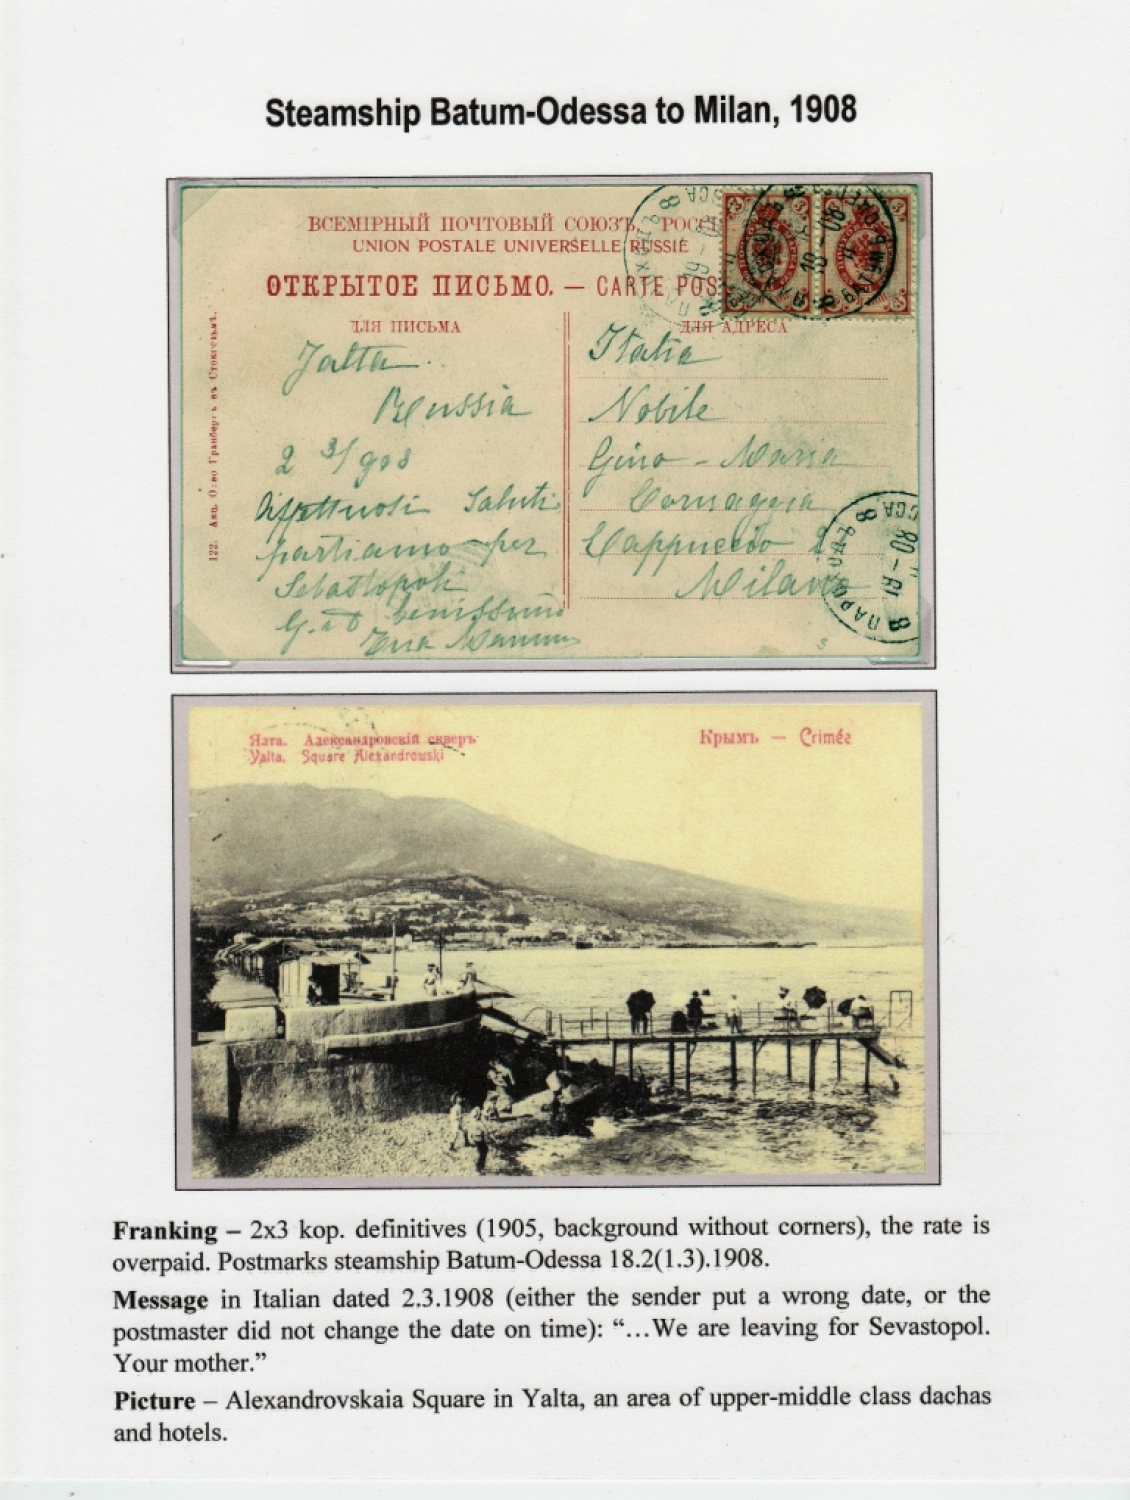 Steamship Batum-Odessa to Milan, 1908
ВСЕМІРНЫЙ ПОЧТОВЫЙ СОЮЗЪ, РОСС
UNION POSTALE UNIVERSELLE RUSSIE
ОТКРЫТОЕ ПИСЬМО. — CARTE POS
ДЛЯ ПИСЬМА
ДЛЯ АДРЕСА
122. Акц. О-во Гранбергъ въ Стокгольмѣ.
Jalta
Russia
2 3/908
Affettuosi Saluti
partiamo per
Sebastopoli
benissimo
Italia
Nobile
Gino - Maria
Cornaggia
Cappuccio 2
Milano
Ялта. Александровскій скверъ
Yalta. Square Alexandrowski
Крымъ — Crimée
Franking – 2x3 kop. definitives (1905, background without corners), the rate is
overpaid. Postmarks steamship Batum-Odessa 18.2(1.3).1908.
Message in Italian dated 2.3.1908 (either the sender put a wrong date, or the
postmaster did not change the date on time): “…We are leaving for Sevastopol.
Your mother.”
Picture – Alexandrovskaia Square in Yalta, an area of upper-middle class dachas
and hotels.